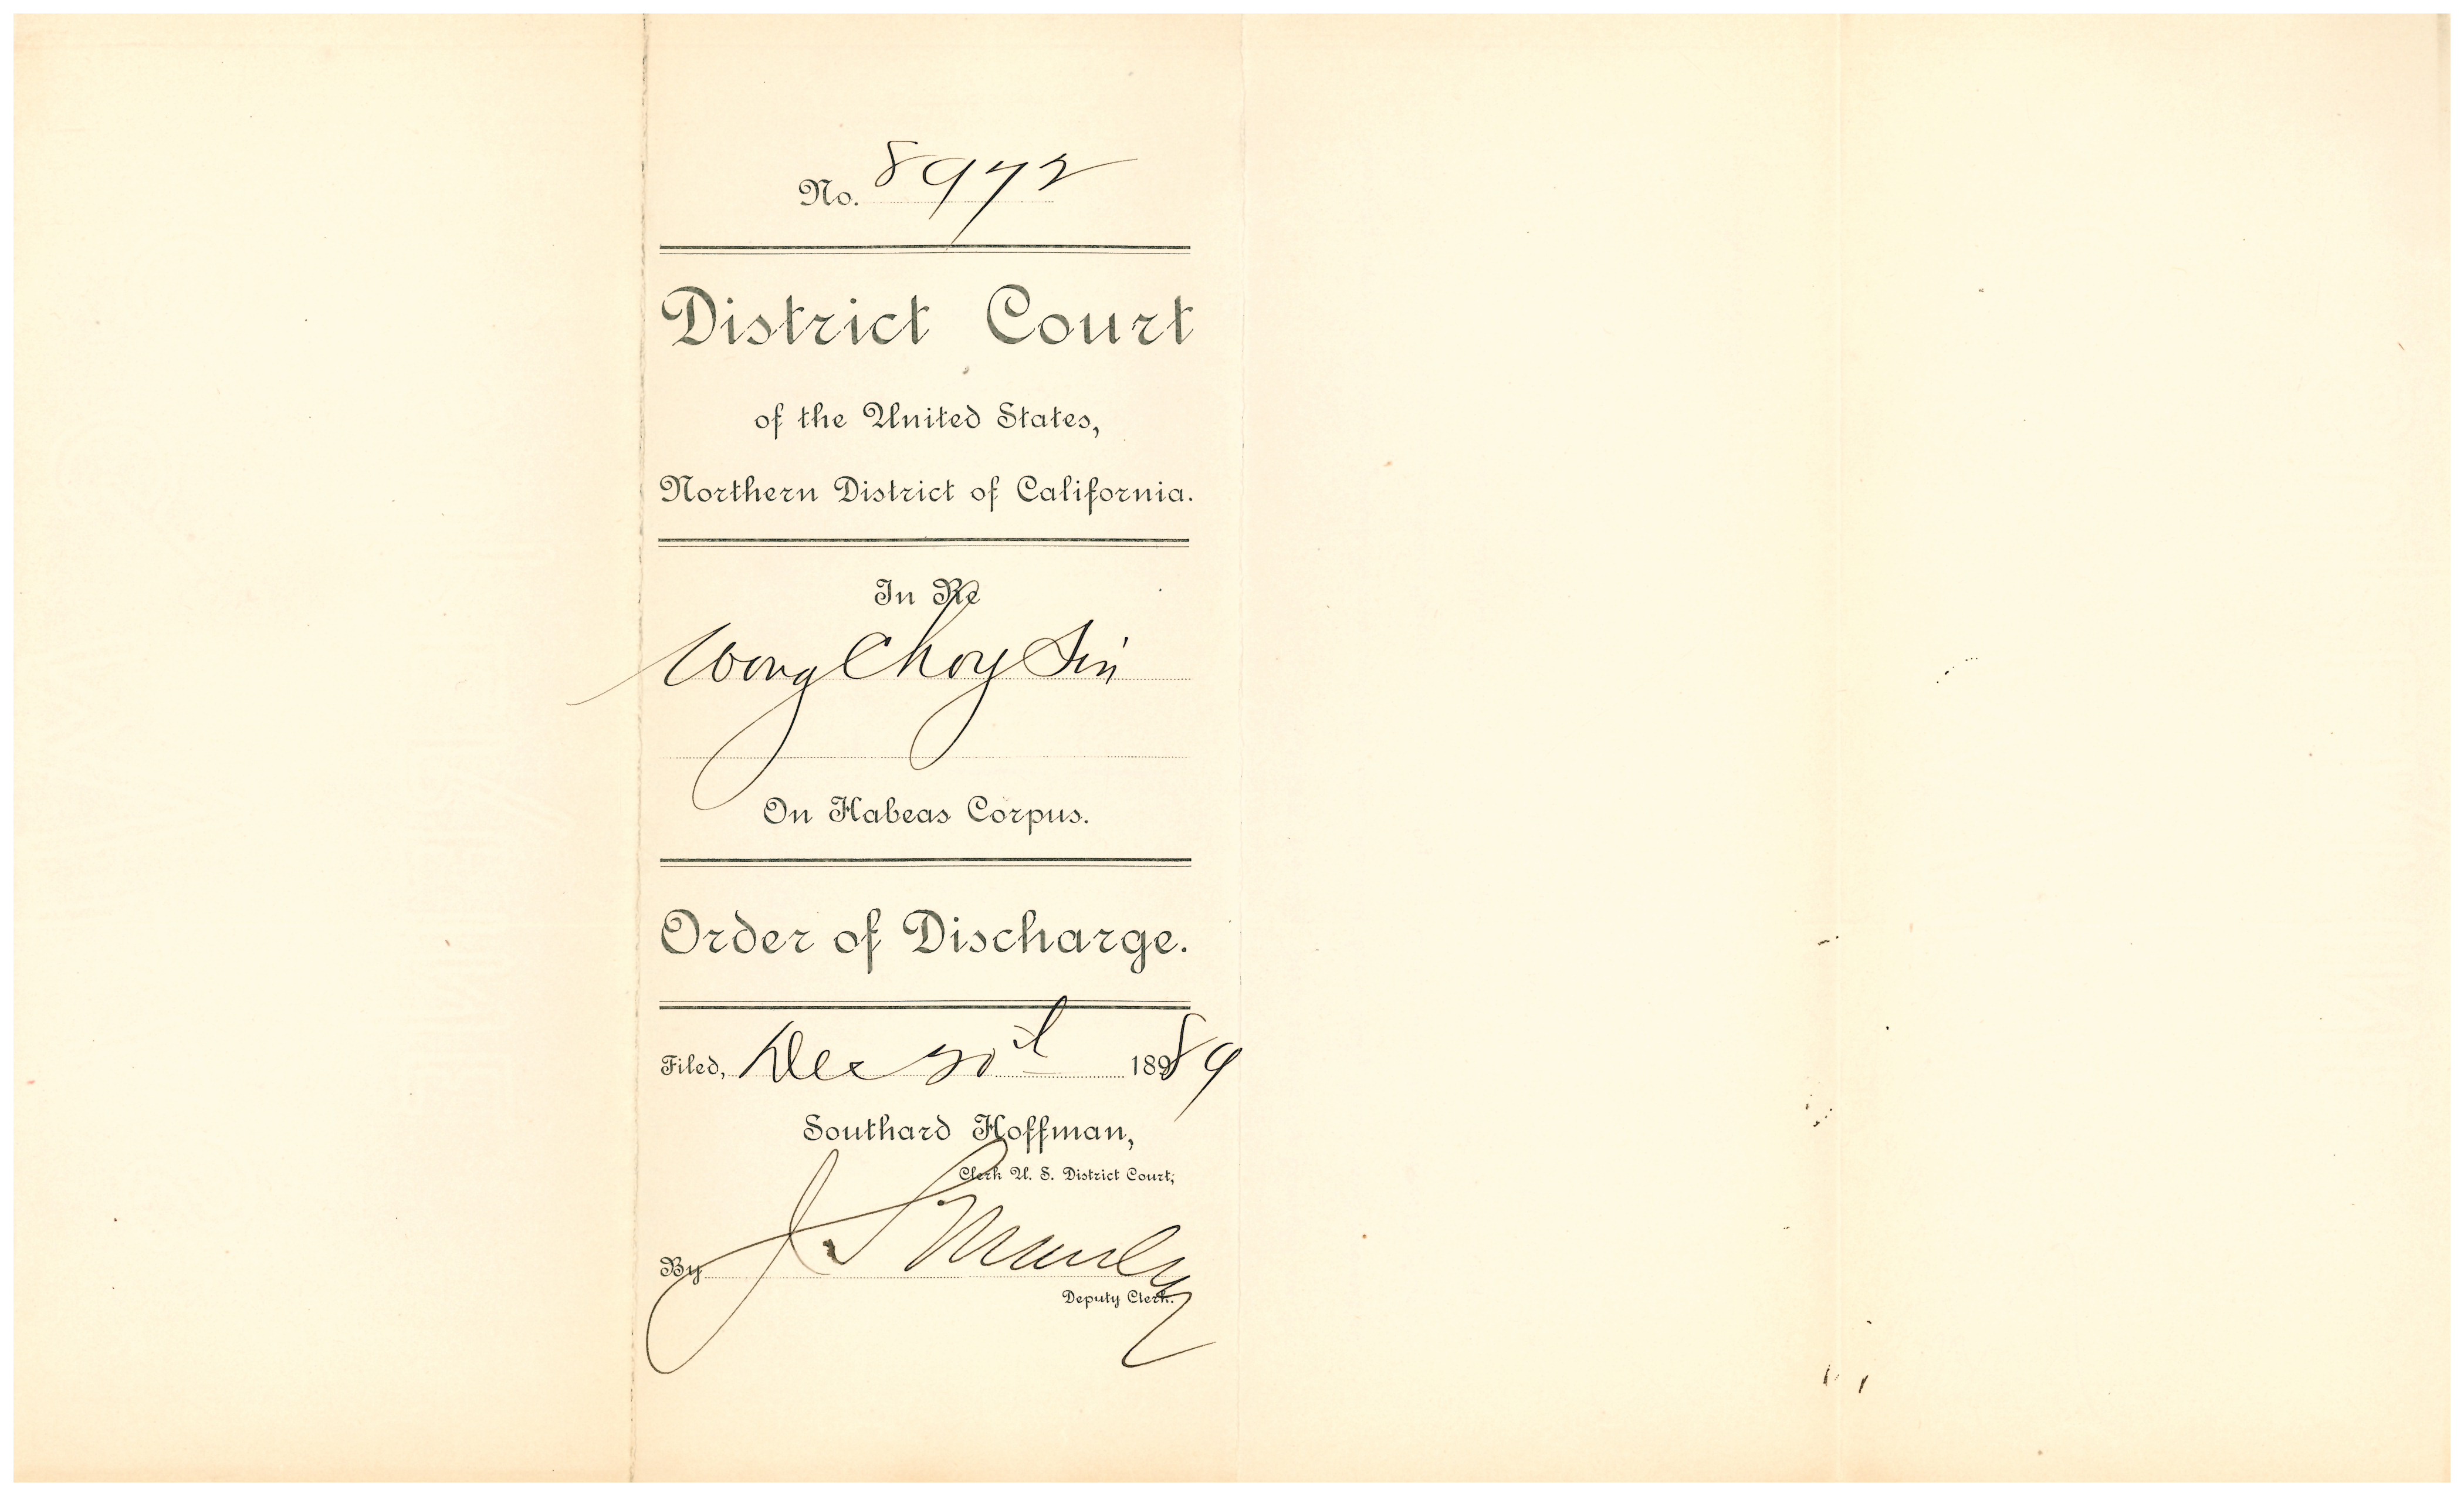 No. 8972
District Court
of the United States,
Northern District of California.
In Re
Wong Choy Sin
On Habeas Corpus.
Order of Discharge.
Filed, Dec 20th 1889
Southard Hoffman,
Clerk U. S. District Court,
By J. S. Manley
Deputy Clerk.